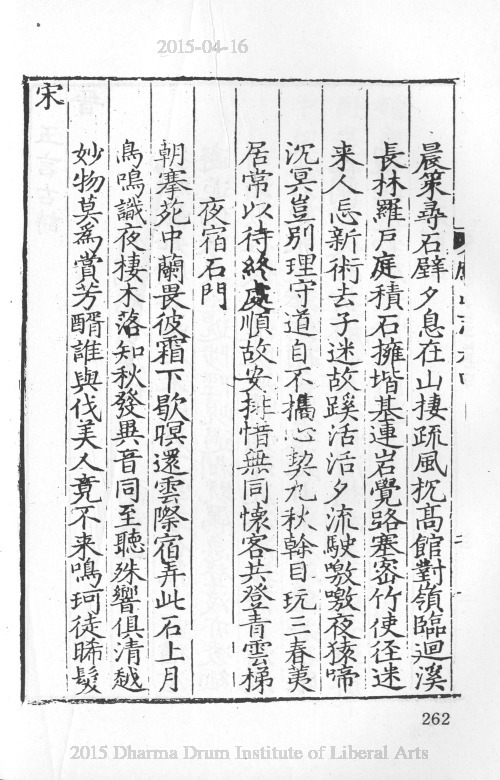 2015-04-16
晨策尋石壁夕息在山棲疏風抗髙館對領臨迴溪
長林羅戶庭積石擁堦基連岩覺路塞宻竹使径迷
来人忘新術去子迷故蹊活活夕流駛噭噭夜猿啼
沉冥豈别理守道自不攜心契九秋榦目玩三春荑
居常以待終處順故安排惜無同懷客共登青雲梯
夜宿石門
朝搴苑中蘭畏彼霜下歇暝還雲際宿弄此石上月
鳥鳴識夜棲木落知秋發異音同至聽殊響俱清越
妙物莫為賞芳醑誰與伐美人竟不来鳴珂徒晞髮
宋
262
2015 Dharma Drum Institute of Liberal Arts